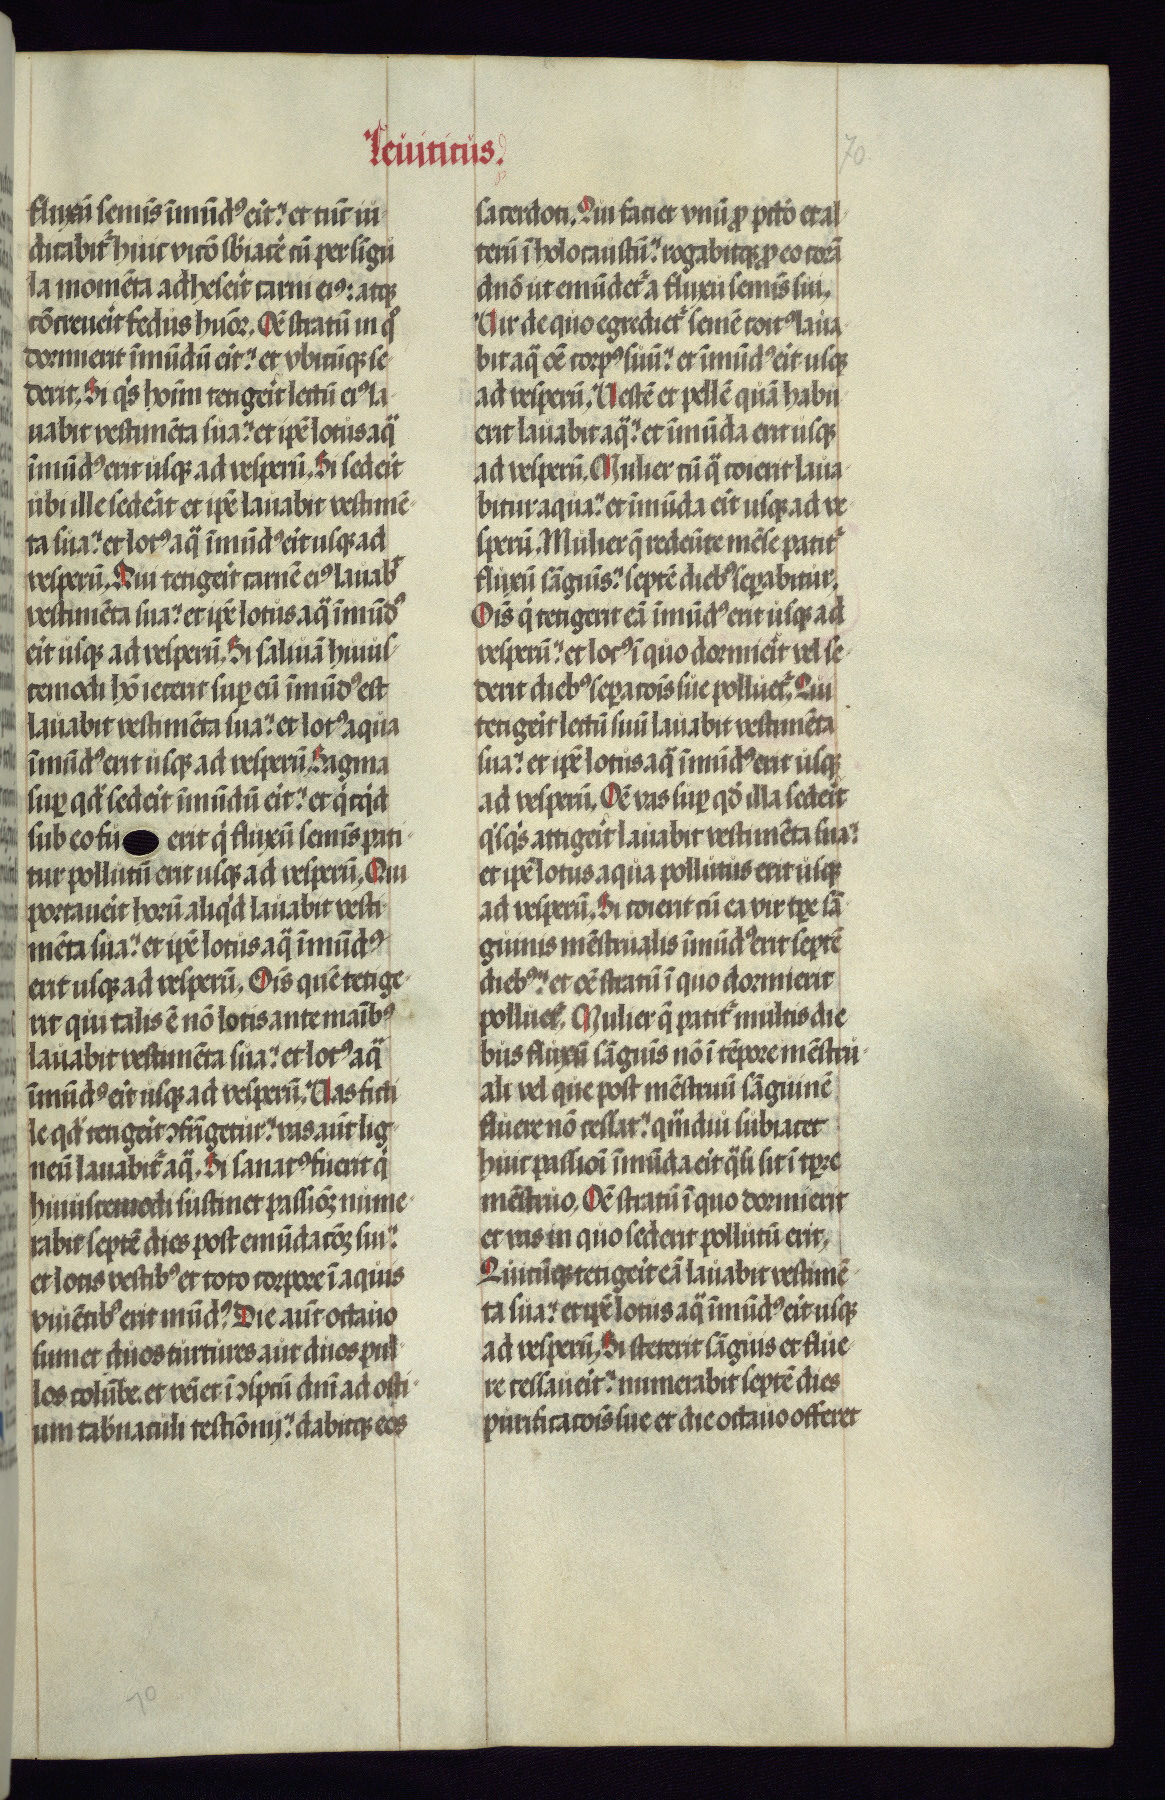 Leuiticus.
70.
fluxū semīs īmūdꝰ eīt: et tūc iu
dicabiť huic vicō sbiacē cū per sigu
la momēta adheseīt carni eiꝰ: atqꝫ
cōcreueīt fedus huōr. Oē stratū in qͦ
dormierit īmūdū eīt: et vbicūqꝫ se
derit. Si qͥs hoīm tetigeīt lectū eiꝰ la
uabit vestimēta sua: et ipē lotus aqͣ
īmūdꝰ erit usqꝫ ad vesperū. Si sedeīt
ubi ille sedeāt et ipē lauabit vestimē
ta sua: et lotꝰ aqͣ īmūdꝰ eīt usqꝫ ad
vesperū. Qui tetigeīt carnē eiꝰ lauab̄
vestimēta sua: et ipē lotus aqͣ īmūdꝰ
eīt usqꝫ ad vesperū. Si saliuā huius
cemodi hō iecerit suꝑ eū īmūdꝰ est
lauabit vestimēta sua: et lotꝰ aqua
īmūdꝰ erit usqꝫ ad vesperū. Sagma
suꝑ qd̄ sedeīt īmūdū eīt: et qͥcqͥd
sub eo fu erit qͥ fluxū semīs pati
tur pollutū erit usqꝫ ad vesperū. Qui
portaueīt horū aliqͥd lauabit vesti
mēta sua: et ipē lotus aqͣ īmūdꝰ
erit usqꝫ ad vesperū. Oīs quē tetige
rit qui talis ē nō lotis ante maībꝰ
lauabit vestimēta sua: et lotꝰ aqͣ
īmūdꝰ eīt usqꝫ ad vesperū. Vas ficti
le qd̄ tetigeīt ꝯfrīgetur: vas aūt lig
neū lauabiť aqͣ. Si sanatꝰ fuerit qͥ
huiuscemodi sustinet passiōꝫ nume
rabit septē dies post emūdacōꝫ sui:
et lotis vestibꝰ et toto corpore ī aquis
viuētibꝰ erit mūdꝰ. Die aūt octauo
sumet duos turtures aut duos pul
los colūbe. et veīet ī ꝯspcū dnī ad osti
um tab̄naculi testiōnij: dabitqꝫ eos
sacerdoti. Qui faciet vnū ꝓ pctō et al
terū ī holocaustū: rogabitqꝫ ꝓ eo corā
dnō ut emūdeť a fluxu semīs sui.
Vir de quo egredieť semē coitꝰ laua
bit aqͣ oē corpꝰ suū: et īmūdꝰ eīt usqꝫ
ad vesperū. Vestē et pellē quā habu
erit lauabit aqͣ: et īmūda erit usqꝫ
ad vesperū. Mulier cū qͣ coierit laua
bitur aqua: et īmūda eīt usqꝫ ad ve
sperū. Mulier q̄ redeūte mēse patiť
fluxū sāguīs: septē diebꝰ seꝑabitur.
Oīs qͥ tetigerit eā īmūdꝰ erit usqꝫ ad
vesperū: et locꝰ ī quo dormieīt vel se
derit diebꝰ seꝑacōis sue pollueť. Qui
tetigeīt lectū suū lauabit vestimēta
sua: et ipē lotus aqͣ īmūdꝰ erit usqꝫ
ad vesperū. Oē vas suꝑ qd̄ illa sedeīt
qͥsqͥs attigeīt lauabit vestimēta sua:
et ipē lotus aqua pollutus erit usqꝫ
ad vesperū. Si coierit cū ea vir tꝑe sā
guinis mēstrualis īmūdꝰ erit septē
diebꝰ: et oē stratū ī quo dormierit
pollueť. Mulier q̄ patiť multis die
bus fluxū sāguīs nō ī tēpore mēstru
ali vel que post mēstruū sāguinē
fluere nō cessat: qͣmdiu subiacet
huic passioī īmūda eīt qͣsi sit ī tꝑre
mēstruo. Oē stratū ī quo dormierit
et vas in quo sederit pollutū erit.
Quicūqꝫ tetigeīt eā lauabit vestimē
ta sua: et ipē lotus aqͣ īmūdꝰ eīt usqꝫ
ad vesperū. Si steterit sāguis et flue
re cessaueīt: numerabit septē dies
purificacōis sue et die octauo offeret
70